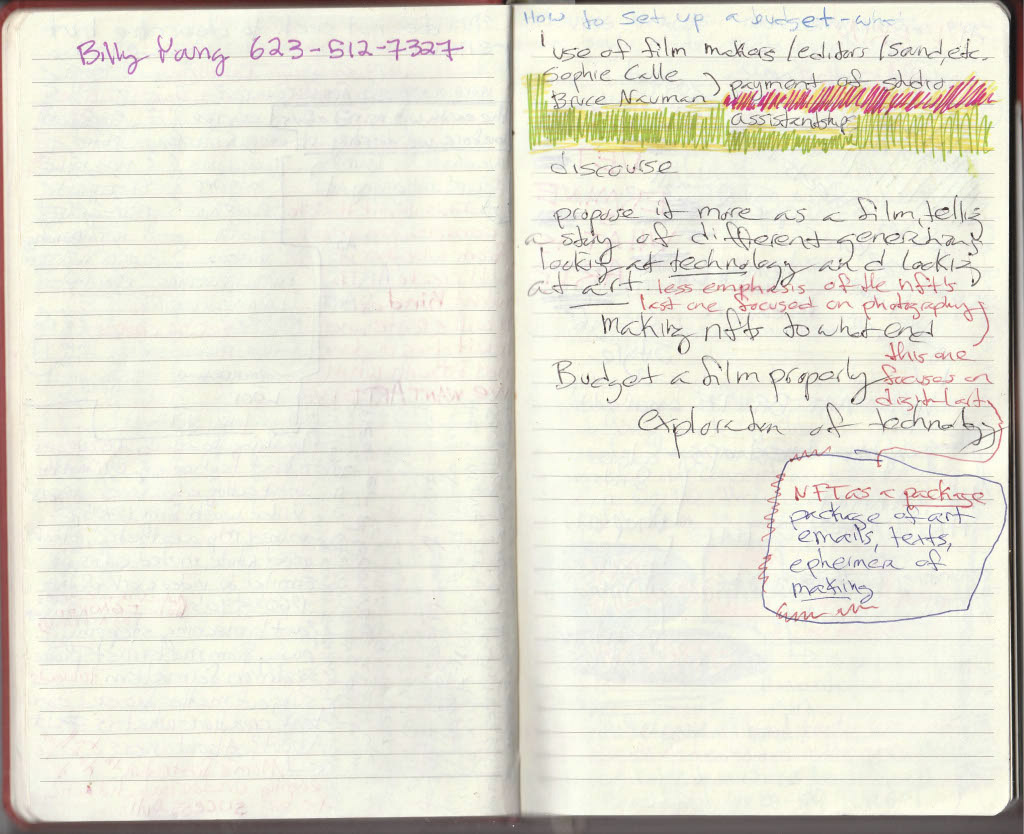 Billy Yang 623-512-7327
How to set up a budget - what
use of film makers / editors / Sound, etc.
Sophie Calle
Bruce Nauman ) payment of studio
assistantship
discourse
propose it more as a film, telling
a story of different generations
looking at technology and looking
at art. less emphasis of the nft's
last one focused on photography
making nfts to what end
this one
Budget a film properly focuses on
digital art
exploration of technology
NFT as a package
package of art
emails, texts,
ephemera of
making